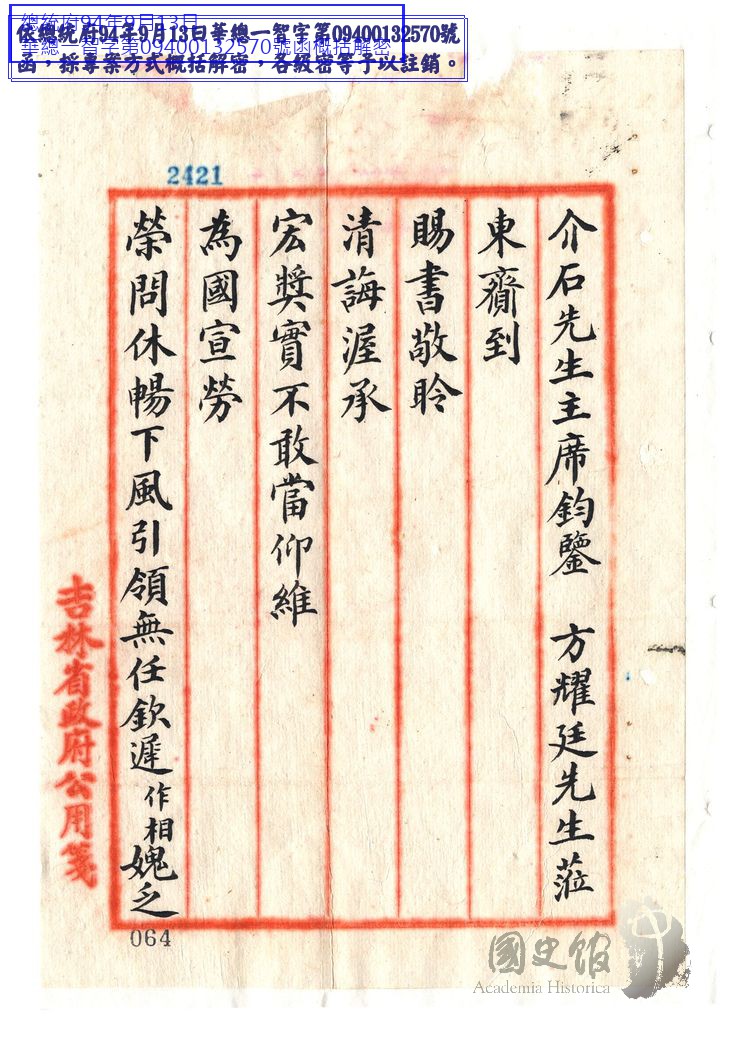 總統府94年9月13日
華總一智字第09400132570號函概括解密
依總統府94年9月13日華總一智字第09400132570號
函，採專案方式概括解密，各級密等予以註銷。
2421
介石先生主席鈞鑒　方耀廷先生蒞
東齎到
賜書敬聆
清誨渥承
宏獎實不敢當仰維
為國宣勞
榮問休暢下風引領無任欽遲作相媿乏
吉林省政府公用箋
064
國史館
Academia Historica